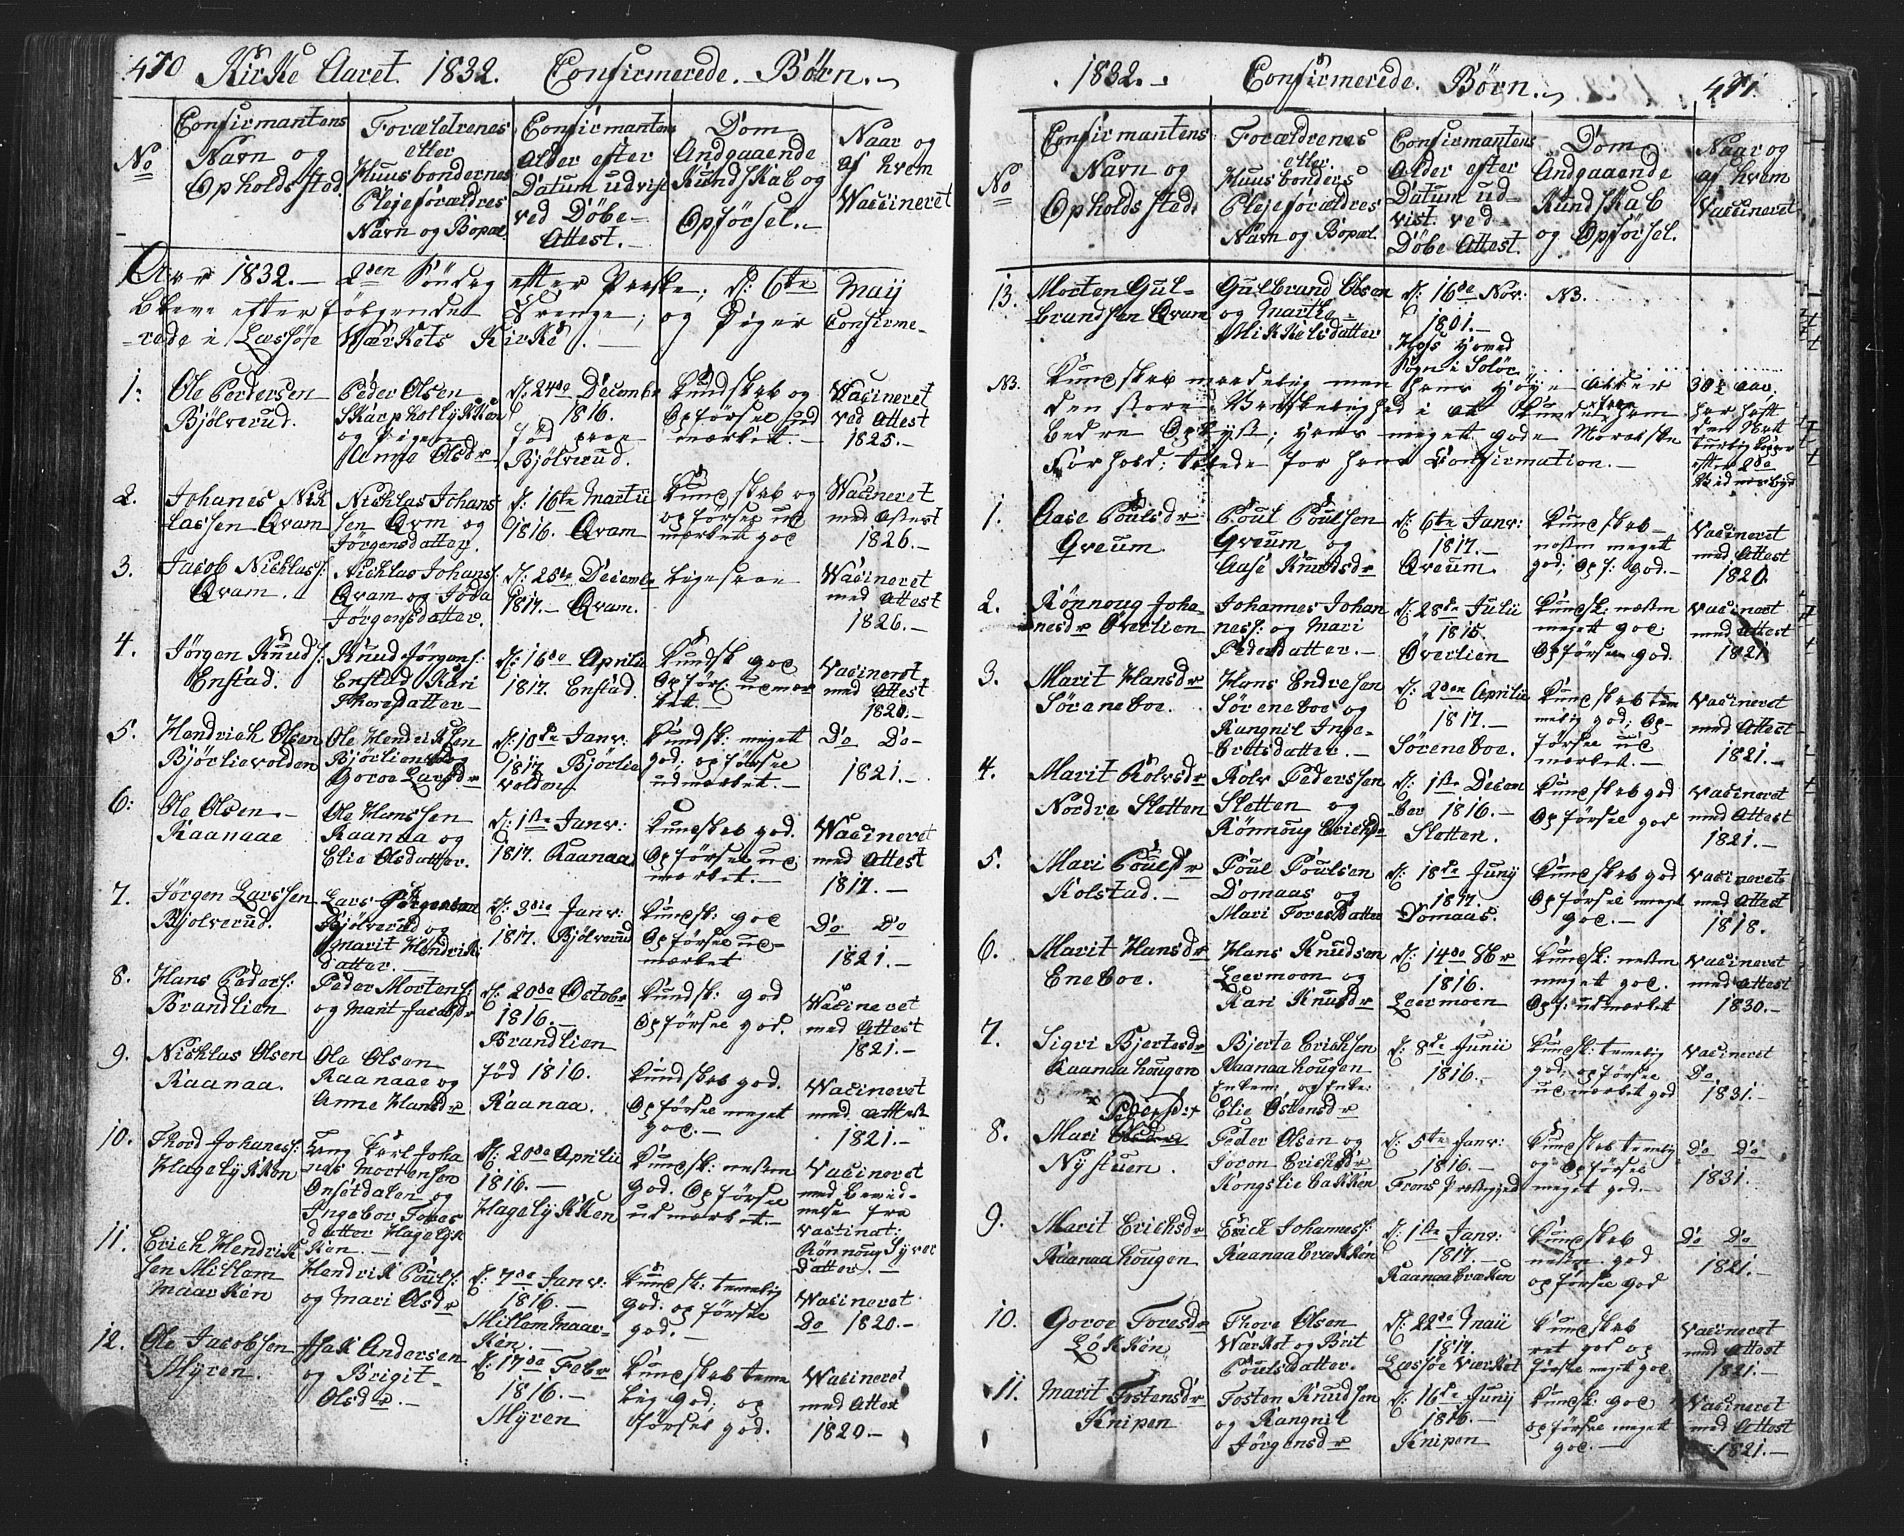 470 Kirke Aaret 1832. Confirmerede Børn.
No
Confirmantens
Navn og
Opholds stad
Forældrenes
eller
Huusbondernes
Plejeforældres
Navn og Bopæl
Confirmantens
Alder efter
Datum udvist
ved Døbe-
Attest.
Dom
Andgaaende
Kundskab og
Opførsel.
Naar og
af hvem
Vaccineret
1832. 2den Søndag efter Paaske; d: 6te Maij
bleve efterfølgende Drenge; og Piger Confirme-
rede i Læssøe Værkets Kirke.
1.
Ole Pedersen
Bjølverud.
Peder Olsen
Skarphollykken
og Pigen
Anne Olsdr
d: 24de Decembr
1816.
fød paa
Bjølverud.
Kundskab og
Opførsel ud
mærket.
Vaccineret
ved Attest
1825.
2.
Johanes Nick
lassen Qvam
Nicklas Johans
sen Qvm og
Jørgensdatter.
d: 16te Martii
1816. Qvam
Kundskab og
opførsel ud
mærket god
Vaccineret
med Attest
1826.
3.
Jacob Nicklass:
Qvam.
Nicklas Johans:
Qvam og Jøda
Jørgensdatter.
d: 25de Decemb
1817. Qvam.
Ligesaa
Vaccineret
med Attest
1826.
4.
Jørgen Knuds:
Enstad.
Knud Jørgens:
Enstad Kari
Thoresdatter
d: 16de Aprili
1817. Enstad.
Kundsk god
Opførs: udmær
ket.
Vaccineret
med Attest
1820.
5.
Hendrich Olsen
Bjørlievolden
Ole Hendriksen
Bjørlien og
Goroe Larsdr
d: 10de Janv:
1817 Bjørlie
volden
Kundsk: meget
god; opførsel
udmærket.
Do Do
1821.
6:
Ole Olsen
Raanaae
Ole Hanssen
Raanaa og
Elie Olsdatter.
d: 1ste Janv:
1817. Raanaa
Kundskab god.
Opførsel ud
mærket.
Vaccineret
med Attest
1817.
7.
Jørgen Larssen
Bjølverud.
Lars Jørgensen
Bjølverud og
Marit Hendriks
datter.
d: 3die Janv:
1817. Bjølverud
Kundsk: god
Opførsel ud
mærket
Do Do
1821.
8.
Hans Peders:
Brandlien
Peder Mortens:
og Marit Jacobsdr
d: 20de Octobr
1816.
Brandlien
Kundsk: god
Opførsel god.
Vaccineret
med Attest
1821.
9.
Nicklas Olsen
Raanaa.
Ole Olsen
Raanaae og
Anne Hansdr
fød 1816.
Raanaa.
Kundskab god.
Opførsel meget
god.
Vaccineret
med Attest
1821.
10.
Thord Johaness:
Hagelykken
Johan
nes Mortensen
Onsetdalen og
Ingebor Tores
datter Hagelyk
ken.
d: 20de Aprilii
1816.
Hagelykken
Kundsk: næsten
god. Opførsel
udmærket.
Vaccineret
med bevid-
nelse fra
vaccinat:
Rønnoug Syver
datter.
11.
Erich Hendrik
sen Millom
Maarken
Hendrik Pouls:
og Mari Olsdr
d: 7de Janv:
1816.
Millom Maar-
ken.
Kundsk: temelig
god. opførsel
god.
Vaccineret
Do 1820.
12.
Ole Jacobsen
Myren.
Jsak Andersen
og Brigit
Olsdr.
d: 17de Febr
1816.
Myren
Kundskab teme
lig god; op
førsel god.
Vaccineret
med Attest
1820.
1832. Confirmerede Børn. 471.
No
Confirmantens
Navn og
Opholds stad.
Forældrenes
eller
Huusbonders
Plejeforældres
Navn og Bopæl
Confirmantens
Alder efter
Datum ud-
vist ved
Døbe Attest.
Dom
Andgaaende
Kundskab
og Opførsel.
Naar og
af hvem
Vaccineret
13.
Morten Gul-
brandsen Qvam
Gulbrand Olsen
og Marthe
Mikkelsdatter
d: 16de Nov:
1801.
Hofs Hoved
Sogn i Soløe
NB.
NB. Kundskab maadelig men hans høye Alder 30 aar,
den store Vanskelighed i at kunde
bedre Oplyst; hans meget gode Moralske
Forhold; talede for hans Confirmation.
1.
Aase Poulsdr
Qveum.
Poul Poulsen
Qveum og
Aase Knudsdr
d: 6te Janv:
1817.
Qveum.
Kundskab
næsten meget
god; Opf: god.
Vaccineret
med Attest
1820.
2.
Rønnoug Joha
nesdr Øverlien
Johannes Johan
ness: og Mari
Pedersdatter.
d: 28de Julii
1815.
Øverlien
Kundsk: næsten
meget god.
Opførsel god.
Vaccineret
med Attest
1821
3.
Marit Hansdr
Søreneboe.
Hans Endresen
Søreneboe og
Rangnil Inge-
bretsdatter.
d: 2den Aprilie
1817.
Søreneboe.
Kundskab tem
melig god; Op-
førsel ud
mærket.
Vaccineret
med Attest
1821.
4.
Marit Rolvsdr
Nordre Sletten
Rolv Pederssen
Sletten og
Rønnoug Erichsdr
d: 1ste Decem
ber 1816.
Sletten.
Kundskab god
Opførsel god
Vaccineret
med Attest
1821.
5.
Mari Poulsdr
Kolstad.
Poul Poulsen
Domaas og
Mari Toresdatter
d: 18de Junij
1817.
Domaas.
Kundskab god
Opførsel meget
god.
Vaccineret
med Attest
1818.
6.
Marit Hansdr
Eneboe.
Hans Knudsen
Leermoen og
Kari Knusdr
d: 14de 8br
1816.
Leermoen
Kundsk: næsten
meget god.
Opf: udmærket
Vaccineret
med Attest
1830.
7.
Sigri Bjertesdr
Raanaa hougen
Bjerte Erichsen
Raanaa hougen
Enkem: og Enke:
Elie Ostensdr
d: 8de Junii
1816.
Kundsk: temelig
god; opførsel
udmærket god
Vaccineret
Do
1831.
8.
Pedersdr
Mari
Nystuen.
Peder Olsen og
Joron Erichsdr
Kongslie bakken
d: 5te Janv:
1816.
Frons Præstegjeld
Kundskab temelig
og Opførsel
meget god.
Do Do
1831.
9.
Marit Erichsdr
Raanaa hougen
Erick Johaness:
Raanaa bræcken
d: 1ste Janv:
1817.
Raanaabræcken
Kundskab
næsten god
opførsel god
Do Do
1821.
10.
Goroe Toresdr
Løkken
Thore Olsen
Værket og Brit
Poulsdatter.
d: 22de Maii
1817.
Læssøe Værket
Kundskab
ret god op
førsel meget god
Vaccineret
med Attest
1821.
11.
Marit Tostensdr
Knipen
Tosten Knudsen
og Rangnil
Jørgensdr
d: 16de Junij
1816.
Knipen
Kundsk: god
opførsel meget
god.
Vaccineret
med Attest
1821.